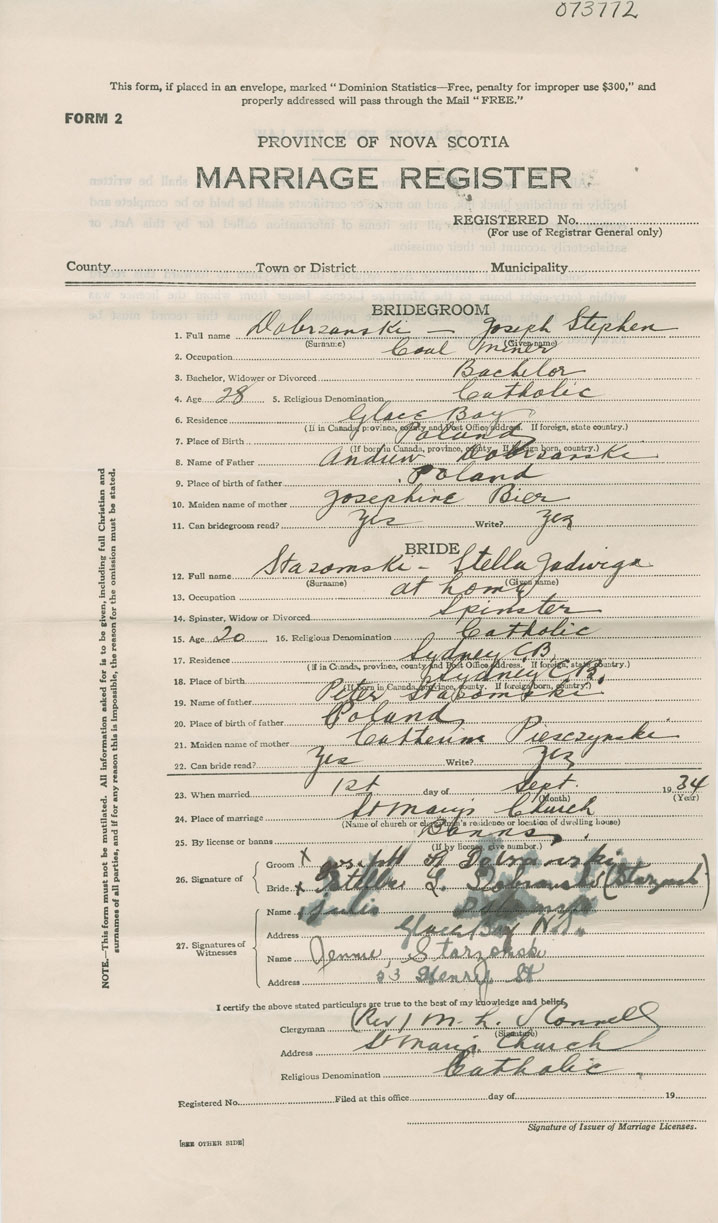 073772
This form, if placed in an envelope, marked "Dominion Statistics—Free, penalty for improper use $300," and
properly addressed will pass through the Mail "FREE."
FORM 2
PROVINCE OF NOVA SCOTIA
MARRIAGE REGISTER
REGISTERED No.
(For use of Registrar General only)
County Town or District Municipality
BRIDEGROOM
1. Full name Dobrzanski — Joseph Stephen
(Surname) (Given name)
2. Occupation Coal Miner
3. Bachelor, Widower or Divorced Bachelor
4. Age 28 5. Religious Denomination Catholic
6. Residence Glace Bay
(If in Canada, province, county and Post Office address. If foreign, state country.)
7. Place of Birth Poland
(If born in Canada, province, county. If foreign born, country.)
8. Name of Father Andrew Dobrzanski
9. Place of birth of father Poland
10. Maiden name of mother Josephine Bier
11. Can bridegroom read? Yes Write? Yes
BRIDE
12. Full name Stazomski - Stella Jadwiga
(Surname) (Given name)
13. Occupation at home
14. Spinster, Widow or Divorced Spinster
15. Age 20 16. Religious Denomination Catholic
17. Residence Sydney C.B.
(If in Canada, province, county and Post Office address. If foreign, state country.)
18. Place of birth Sydney C.B.
(If born in Canada, province, county. If foreign born, country.)
19. Name of father Peter Stazomski
20. Place of birth of father Poland
21. Maiden name of mother Catherine Piesczynski
22. Can bride read? Yes Write? Yes
23. When married 1st day of Sept. 1934
(Month) (Year)
24. Place of marriage St Mary's Church
(Name of church or clergyman's residence or location of dwelling house)
25. By license or banns Banns
(If by license, give number.)
26. Signature of Groom X
Bride X
27. Signatures of Witnesses
Name Julie
Address Glace Bay N.S.
Name Jennie Starzonski
Address 53 Henry St
I certify the above stated particulars are true to the best of my knowledge and belief,
Clergyman (Rev) M. L.
(Signature)
Address St Mary's Church
Religious Denomination Catholic
Registered No. Filed at this office day of 19
Signature of Issuer of Marriage Licenses.
[SEE OTHER SIDE]
NOTE.—This form must not be mutilated. All information asked for is to be given, including full Christian and
surnames of all parties, and if for any reason this is impossible, the reason for the omission must be stated.